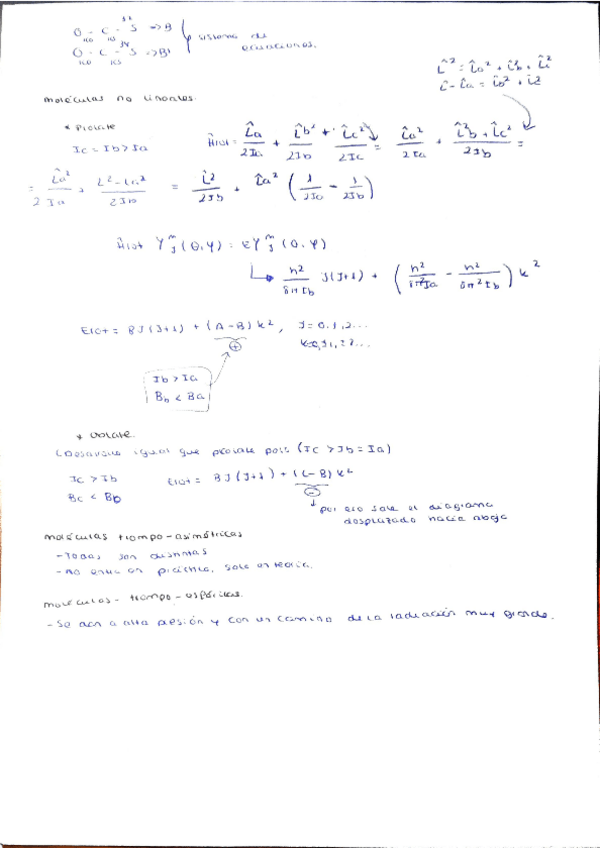 32
O - C - S => B
r160 r165
34
O - C - S => B'
r160 r165
sistema de
ecuaciones.
L̂² = L̂a² + L̂b² + L̂c²
L̂ - L̂a = L̂b² + L̂c²
moléculas no lineales.
* Prolate
Ic = Ib > Ia
Ĥrot = L̂a²/2Ia + L̂b²/2Ib + L̂c²/2Ic = L̂a²/2Ia + L̂²b + L̂c²/2Ib =
= L̂a²/2Ia + L² - La²/2Ib = L̂²/2Ib + L̂a² (1/2Ia - 1/2Ib)
Ĥrot Y^m_J (θ, φ) = E Y^m_J (θ, φ)
h²/8π²Ib J(J+1) + (h²/8π²Ia - h²/8π²Ib) k²
Erot = BJ(J+1) + (A-B) k² , J = 0, 1, 2...
k = 0, ±1, ±2...
+
Ib > Ia
Bb < Ba
* Oblate.
(Desarrollo igual que prolate pero (Ic > Ib = Ia)
Ic > Ib
Bc < Bb
Erot = BJ(J+1) + (C-B) k²
-
por eso sale el diagrama
desplazado hacia abajo
moléculas trompo-asimétricas
- Todas son distintas
- no entra en práctica, solo en teoría.
moléculas - trompo - esféricas.
- Se dan a alta presión y con un camino de la radiación muy grande.